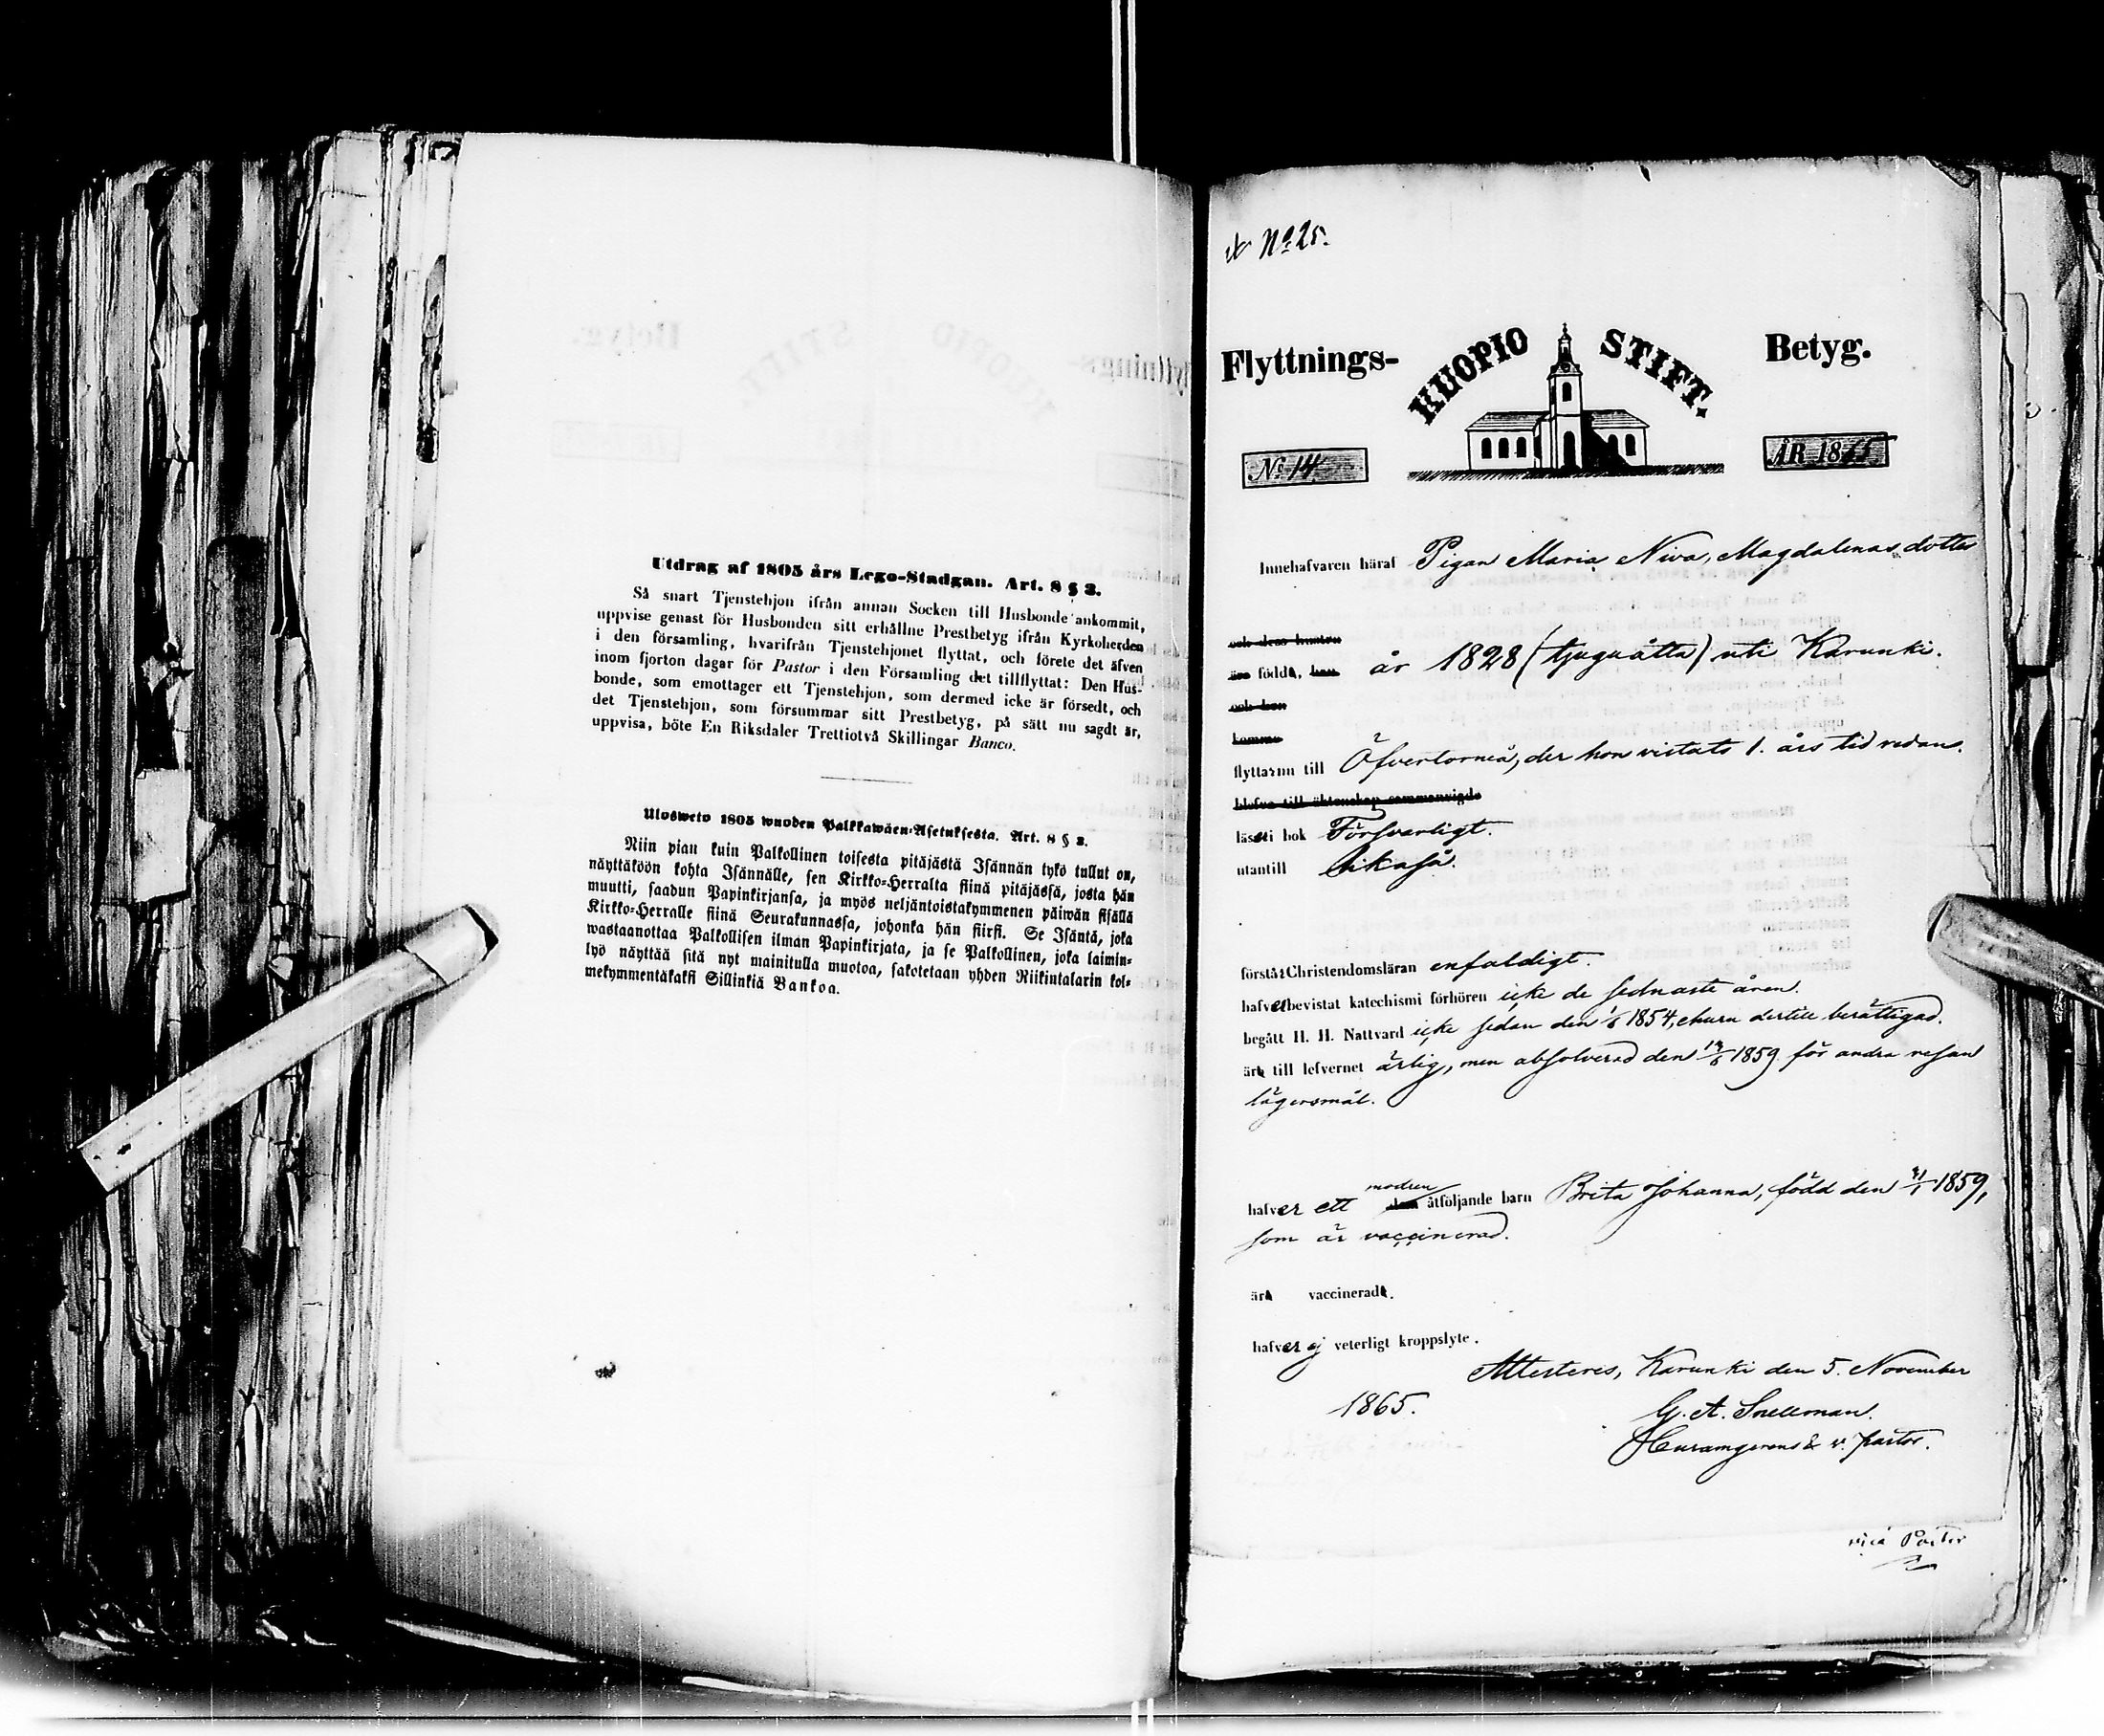 Utdrag af 1805 års Lego-Stadgan. Art. 8 § 3.
Så snart Tjenstehjon ifrån annan Socken till Husbonde ankommit,
uppvise genast för Husbonden sitt erhållne Prestbetyg ifrån Kyrkoherden
i den församling, hvarifrån Tjenstehjonet flyttat, och förete det äfven
inom fjorton dagar för Pastor i den Församling det tillflyttat: Den Hus-
bonde, som emottager ett Tjenstehjon, som dermed icke är försedt, och
det Tjenstehjon, som försummar sitt Prestbetyg, på sätt nu sagdt är,
uppvisa, böte En Riksdaler Trettiotvå Skillingar Banco.
Ulosweto 1805 wuoden Palkkawäen-Asetuksesta. Art. 8 § 3.
Niin pian kuin Palkollinen toisesta pitäjästä Isännän tykö tullut on,
näyttäköön kohta Isännälle, sen Kirkko-Herralta siinä pitäjässä, josta hän
muutti, saadun Papinkirjansa, ja myös neljäntoistakymmenen päiwän sisällä
Kirkko-Herralle siinä Seurakunnassa, johonka hän siirsi. Se Isäntä, joka
wastaanottaa Palkollisen ilman Papinkirjata, ja se Palkollinen, joka laimin-
lyö näyttää sitä nyt mainitulla muotoa, sakotetaan yhden Riikintalarin kol-
mekymmentäkaksi Sillinkiä Bankoa.
No 25.
Flyttnings- KUOPIO STIFT. Betyg.
No 14 ÅR 1865
Innehafvaren häraf Pigan Maria Niva, Magdalenas dotter
och dess hustru
äro född, han år 1828 (tjuguåtta) uti Karunki.
och hon
komma
flyttar nu till Öfvertorneå, der hon vistats 1. års tid redan.
blefvo till äktenskap sammanvigde
läser i bok Försvarligt.
utantill likaså.
förstår Christendomsläran enfaldigt.
hafver bevistat katechismi förhören icke de sednaste åren.
begått H. H. Nattvard icke sedan den 1/6 1854, ehuru dertill berättigad.
är till lefvernet ärlig, men absolverad den 19/6 1859 för andra resan
lägersmål.
hafver ett modren åtföljande barn Brita Johanna, född den 31/1 1859,
som är vaccinerad.
är vaccinerad.
hafver ej veterligt kroppslyte.
Attesteres, Karunki den 5. November
1865.
G. A. Snellman.
v. pastor.
vice Pastor